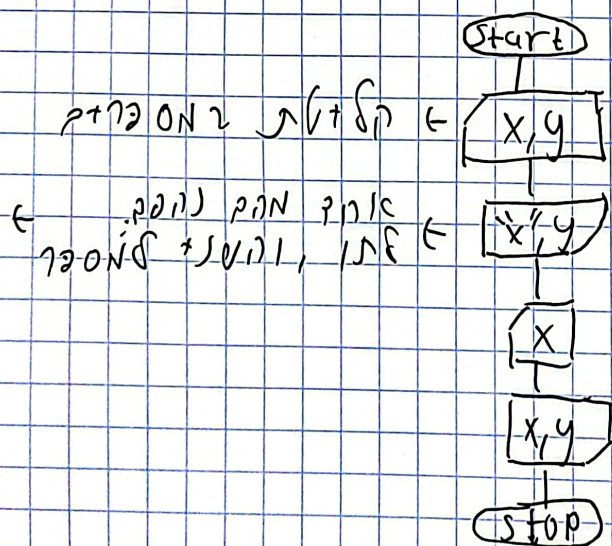 start
x, y
← קליטת 2 מספרים
"x", y
← אחד מהם נהפך
לתו, והשני למספר ←
x
x, y
stop